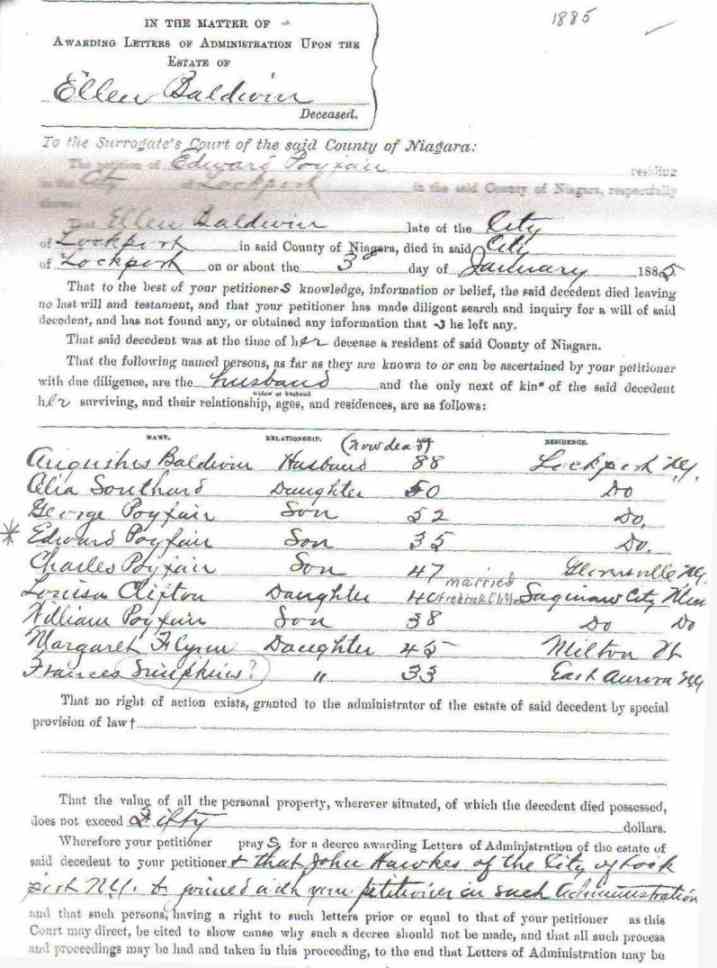 1885
IN THE MATTER OF
AWARDING LETTERS OF ADMINISTRATION UPON THE
ESTATE OF
Ellen Baldwin
Deceased.
To the Surrogate's Court of the said County of Niagara:
The petition of Edward Poyfair residing
in the City of Lockport in the said County of Niagara, respectfully
shows:
That Ellen Baldwin late of the City
of Lockport in said County of Niagara, died in said City
of Lockport on or about the 3d day of January 1885
That to the best of your petitioners knowledge, information or belief, the said decedent died leaving
no last will and testament, and that your petitioner has made diligent search and inquiry for a will of said
decedent, and has not found any, or obtained any information that she left any.
That said decedent was at the time of her decease a resident of said County of Niagara.
That the following named persons, as far as they are known to or can be ascertained by your petitioner
with due diligence, are the husband and the only next of kin* of the said decedent
widow or husband
her surviving, and their relationship, ages, and residences, are as follows:
NAME. RELATIONSHIP. (now dead) RESIDENCE.
Augustus Baldwin Husband 88 Lockport NY.
Alia Southard Daughter 50 Do
George Poyfair Son 52 Do.
* Edward Poyfair Son 35 Do.
Charles Poyfair Son 47 NY
married
Louisa Clifton Daughter 40 Saginaw City Mich
William Poyfair Son 38 Do Do
Margaret Flynn Daughter 45 Milton
Frances Simpkins? " 33 East Aurora NY
That no right of action exists, granted to the administrator of the estate of said decedent by special
provision of law†
That the value of all the personal property, wherever situated, of which the decedent died possessed,
does not exceed Fifty dollars.
Wherefore your petitioner prays for a decree awarding Letters of Administration of the estate of
said decedent to your petitioner & that John Hawkes of the City of Lock
port N.Y. be joined with your petitioner in such Administration
and that such persons, having a right to such letters prior or equal to that of your petitioner as this
Court may direct, be cited to show cause why such a decree should not be made, and that all such process
and proceedings may be had and taken in this proceeding, to the end that Letters of Administration may be